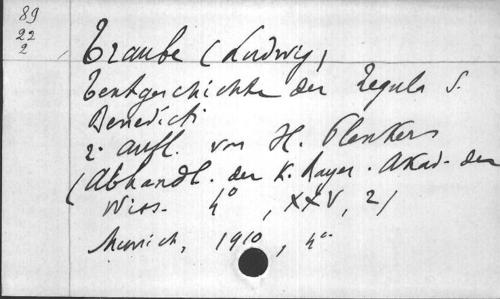 89
22
2
Traube (Ludwig)
Textgeschichte der Regula S.
Benedicti
2e aufl. von H. Plenkers
(Abhandl. der K. Bayer. Akad. der
Wiss. 4°, XXV, 2)
Munich, 1910, 4°